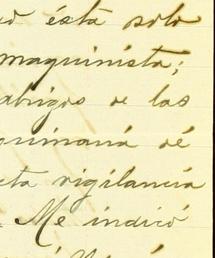 ésta solo
maquinista;
abrigos de las
dé
vigilancia
. Me indicó